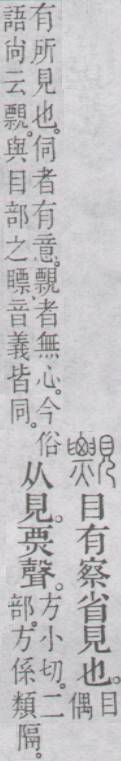 䙳目有察省見也。目偶
有所見也。伺者有意。䙳者無心。今俗
語尚云䙳。與目部之瞟音義皆同。
从見㶾聲。
方小切。二
部。方係類隔。